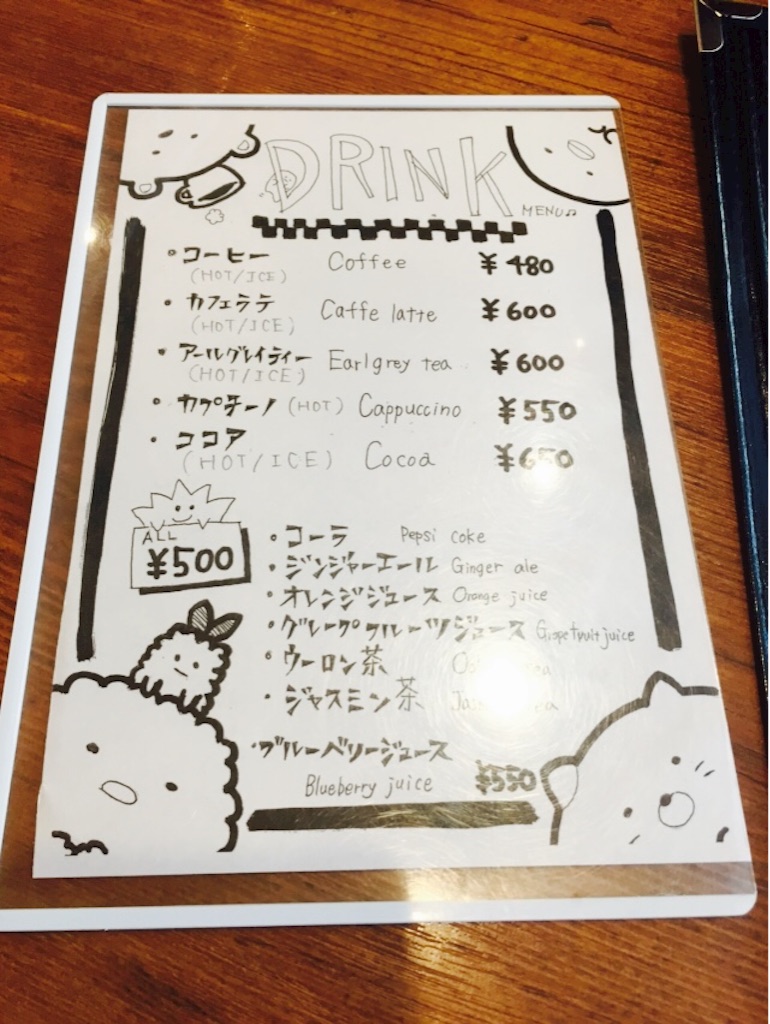 DRINK
MENU♫
・コーヒー Coffee ¥480
(HOT/ICE)
・カフェラテ Caffe latte ¥600
(HOT/ICE)
・アールグレイティー Earlgrey tea ¥600
(HOT/ICE)
・カプチーノ (HOT) Cappuccino ¥550
・ココア Cocoa ¥650
(HOT/ICE)
ALL
¥500
・コーラ Pepsi coke
・ジンジャーエール Ginger ale
・オレンジジュース Orange juice
・グレープフルーツジュース Grapefruit juice
・ウーロン茶
・ジャスミン茶
・ブルーベリージュース
Blueberry juice ¥550